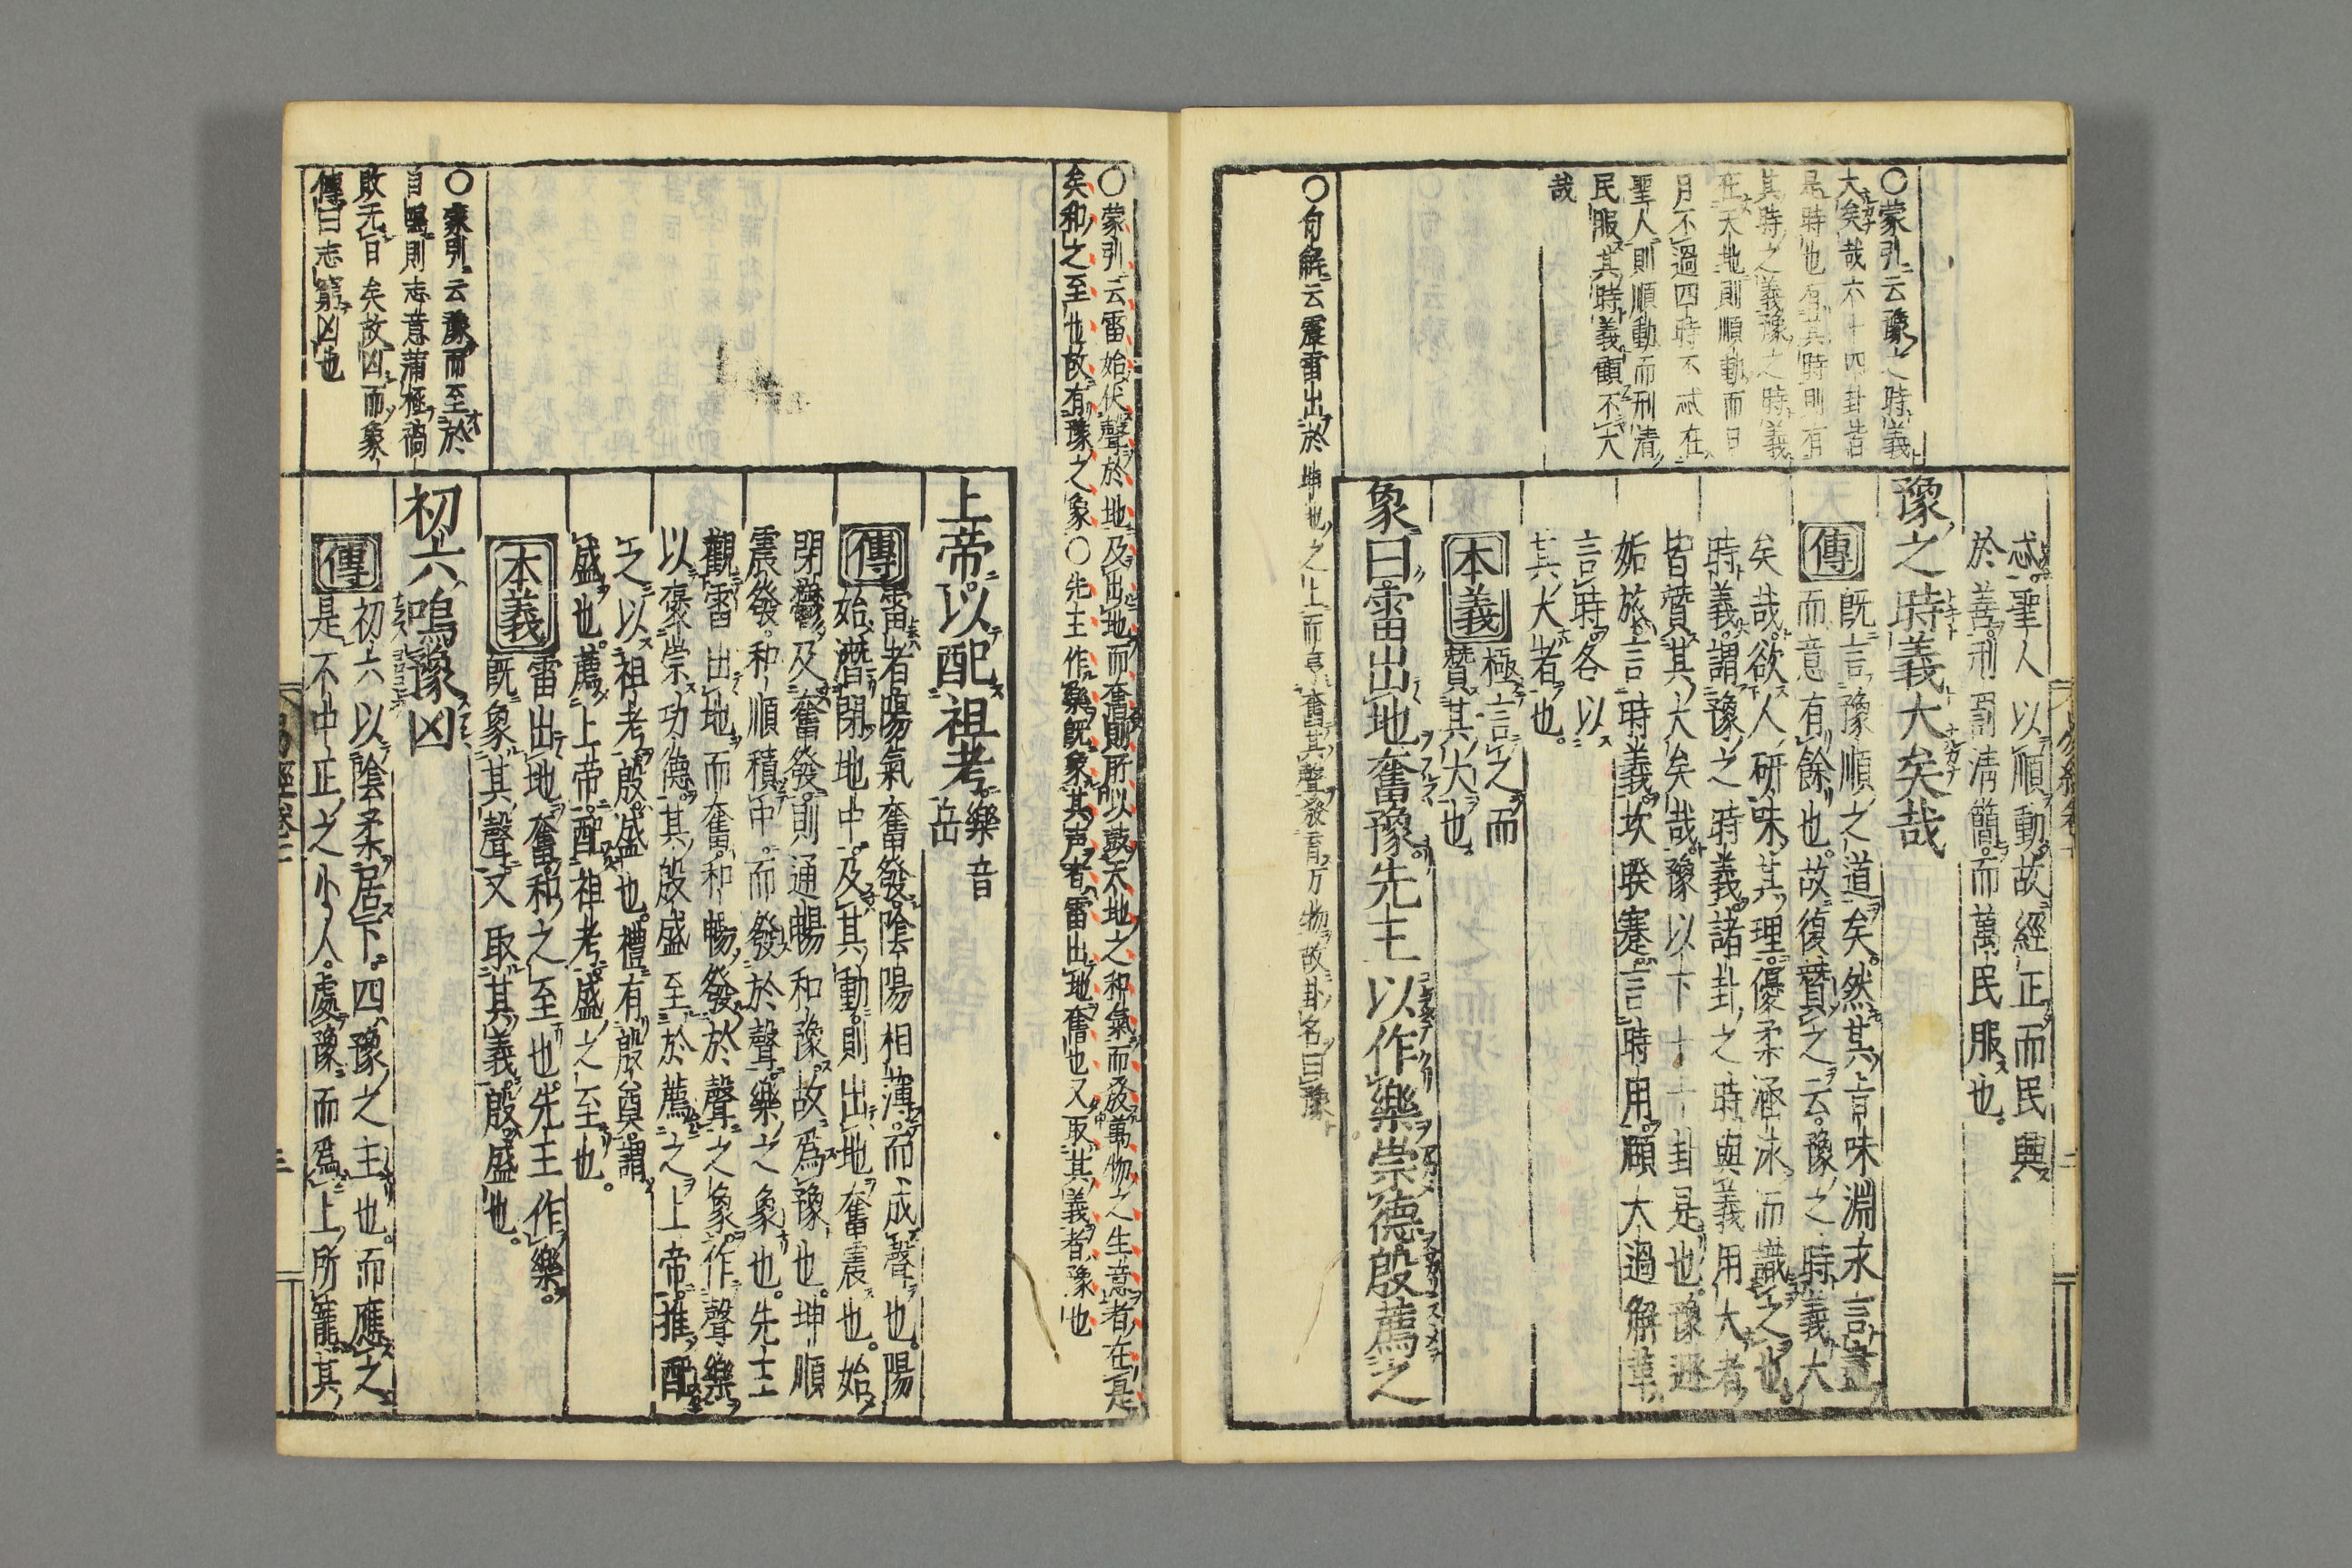 ○蒙引云豫之時義
大矣哉六十四卦皆
是時也有其時則有
其時之義豫之時義
在天地則順動而日
月不過四時不忒在
聖人則順動而刑清
民服其時義顧不大
哉
感聖人以順動故經正而民興
於善刑罰清簡而萬民服也
豫之時義大矣哉
傳
既言豫順之道矣然其旨味淵永言盡
而意有餘也故復贊之云豫之時義大
矣哉欲人研味其理優柔涵泳而識之也
時義謂豫之時義諸卦之時與義用大者
皆贊其大矣哉豫以下十一卦是也豫遯
姤旅言時義坎睽蹇言時用頤大過解革
言時各以
其大者也
本義
極言之而
贊其大也
象曰雷出地奮豫先王以作樂崇德殷薦之
○句解云震雷出於坤地之上而亨奮其聲發育万物故卦名曰豫
○蒙引云雷始伏聲於地及出地而奮則所以鼓天地之和氣而發萬物之生意者在是
矣和之至也故有豫之象○先王作樂既象其声者雷出地奮也又取其義者豫也
上帝以配祖考樂音岳
傳
雷者陽氣奮發陰陽相薄而成聲也陽
始潛閉地中及其動則出地奮震也始
閉鬱及奮發則通暢和豫故爲豫也坤順
震發和順積中而發於聲樂之象也先王
觀雷出地而奮和暢發於聲之象作聲樂
以褒崇功德其殷盛至於薦之上帝推配
之以祖考殷盛也禮有殷奠謂
盛也薦上帝配祖考盛之至也
本義
雷出地奮和之至也先王作樂
既象其聲又取其義殷盛也
○蒙引云豫而至於
自鳴則志意滿極禍
敗无日矣故凶而象
傳曰志窮凶也
初六鳴豫凶
傳
初六以陰柔居下四豫之主也而應之
是不中正之小人處豫而爲上所寵其
易經卷二
三